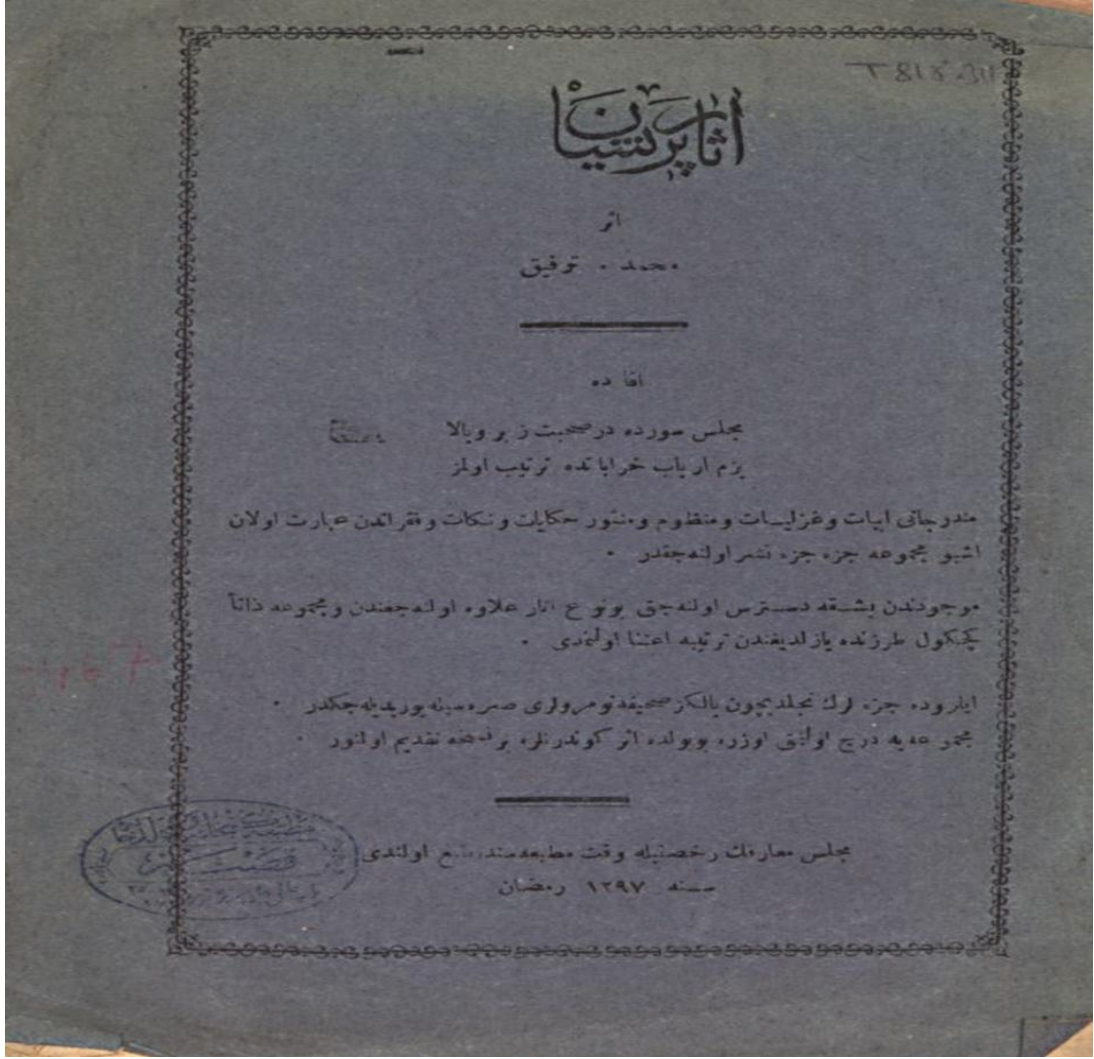 T 815.311
اثار پریشان
اثر
محمد . توفیق
افاده
مجلس سورده در صحبت زیر وبالا
بزم ارباب خراباتده ترتیب اولمز
مندرجاتی ابیات وغزلیات ومنظوم ومنثور حکایات ونکات وفقراتدن عبارت اولان
اشبو مجموعه جزء جزء نشر اولنه‌جقدر .
موجودندن بشقه دسترس اولنه‌جق بونوع اثار علاوه اولنه‌جغندن ومجموعه ذاتاً
کچکول طرزنده یازلدیغندن ترتیبه اعتنا اولنمدی .
ایلروده جزء لرك تجلیدیچون یالکز صحیفه نومرولری صره‌سیله یوریدیله‌جکدر .
مجموعه‌یه درج اولنمق اوزره بویولده اثر کوندرنلره بر نسخه تقدیم اولنور .
مجلس معارفك رخصتیله وقت مطبعه‌سنده طبع اولندی
سنه ۱۲۹۷ رمضان